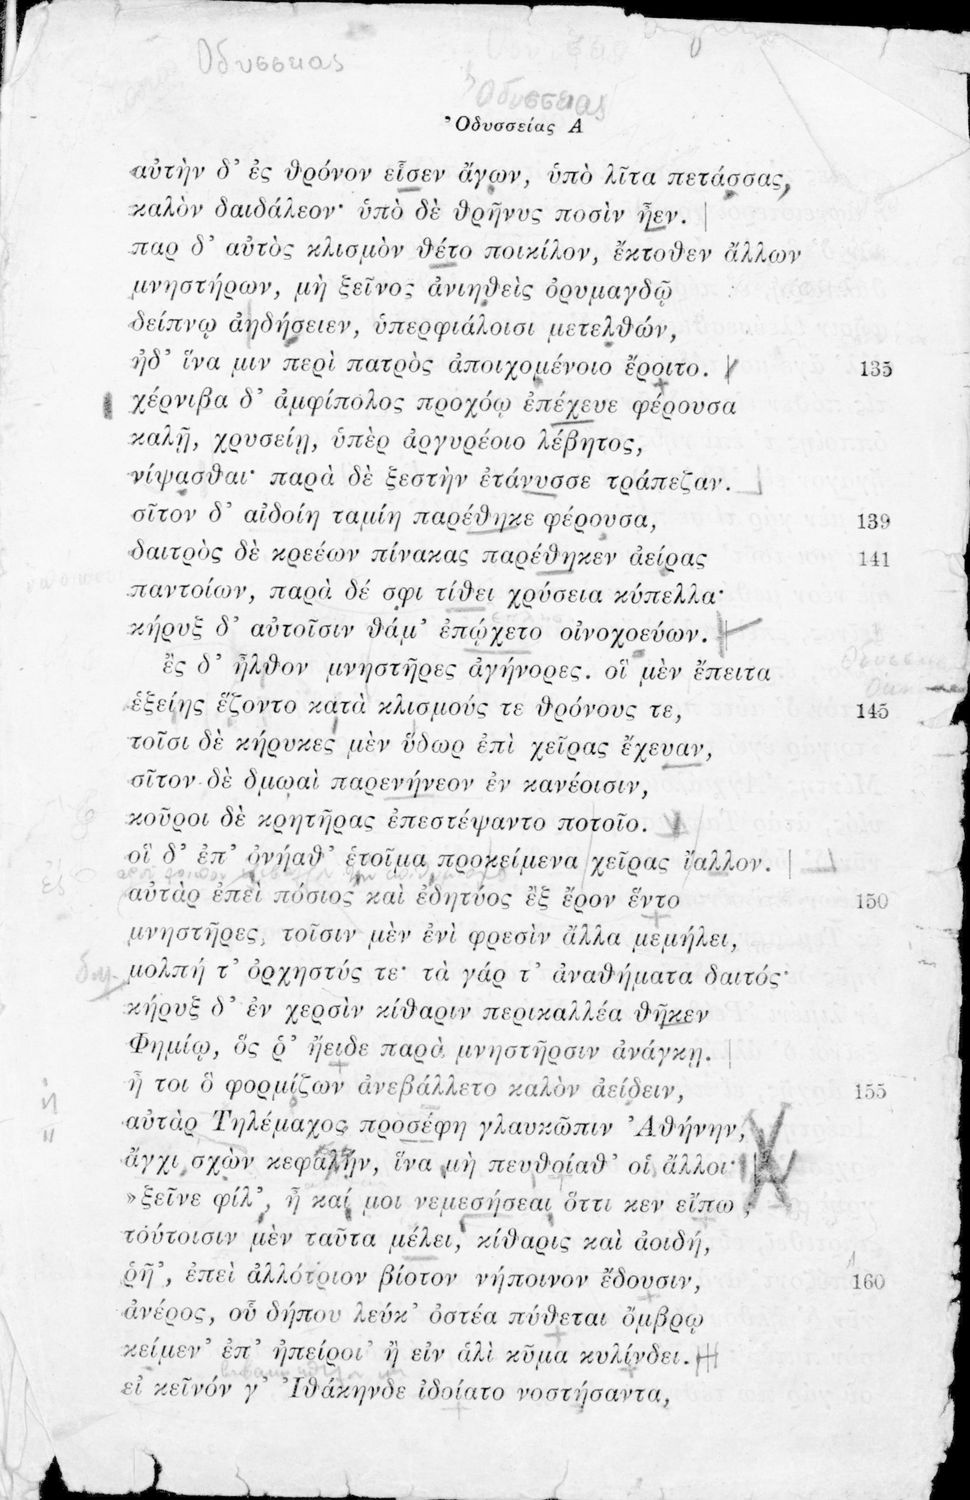 Οδυσσειας
Ὀδυσσειας
Ὀδυσσείας Α
αὐτὴν δ’ ἐς θρόνον εἷσεν ἄγων, ὑπὸ λῖτα πετάσσας,
καλὸν δαιδάλεον· ὑπὸ δὲ θρῆνυς ποσὶν ἦεν.
παρ δ’ αὐτὸς κλισμὸν θέτο ποικίλον, ἔκτοθεν ἄλλων
μνηστήρων, μὴ ξεῖνος ἀνιηθεὶς ὀρυμαγδῷ
δείπνῳ ἀηδήσειεν, ὑπερφιάλοισι μετελθών,
ἠδ’ ἵνα μιν περὶ πατρὸς ἀποιχομένοιο ἔροιτο. 135
χέρνιβα δ’ ἀμφίπολος προχόῳ ἐπέχευε φέρουσα
καλῇ, χρυσείῃ, ὑπὲρ ἀργυρέοιο λέβητος,
νίψασθαι· παρὰ δὲ ξεστὴν ἐτάνυσσε τράπεζαν.
σῖτον δ’ αἰδοίη ταμίη παρέθηκε φέρουσα, 139
δαιτρὸς δὲ κρεέων πίνακας παρέθηκεν ἀείρας 141
παντοίων, παρὰ δέ σφι τίθει χρύσεια κύπελλα·
κήρυξ δ’ αὐτοῖσιν θάμ’ ἐπῴχετο οἰνοχοεύων.
ἒς δ’ ἦλθον μνηστῆρες ἀγήνορες. οἳ μὲν ἔπειτα
ἑξείης ἕζοντο κατὰ κλισμούς τε θρόνους τε, 145
τοῖσι δὲ κήρυκες μὲν ὕδωρ ἐπὶ χεῖρας ἔχευαν,
σῖτον δὲ δμῳαὶ παρενήνεον ἐν κανέοισιν,
κοῦροι δὲ κρητῆρας ἐπεστέψαντο ποτοῖο.
οἳ δ’ ἐπ’ ὀνήαθ’ ἑτοῖμα προκείμενα χεῖρας ἴαλλον.
αὐτὰρ ἐπεὶ πόσιος καὶ ἐδητύος ἒξ ἔρον ἕντο 150
μνηστῆρες, τοῖσιν μὲν ἐνὶ φρεσὶν ἄλλα μεμήλει,
μολπή τ’ ὀρχηστύς τε· τὰ γάρ τ’ ἀναθήματα δαιτός·
κήρυξ δ’ ἐν χερσὶν κίθαριν περικαλλέα θῆκεν
Φημίῳ, ὅς ῥ’ ἤειδε παρὰ μνηστῆρσιν ἀνάγκῃ.
ἦ τοι ὃ φορμίζων ἀνεβάλλετο καλὸν ἀείδειν, 155
αὐτὰρ Τηλέμαχος προσέφη γλαυκῶπιν Ἀθήνην,
ἄγχι σχὼν κεφαλήν, ἵνα μὴ πευθοίαθ’ οἱ ἄλλοι·
»ξεῖνε φίλ’, ἦ καί μοι νεμεσήσεαι ὅττι κεν εἴπω;
τούτοισιν μὲν ταῦτα μέλει, κίθαρις καὶ ἀοιδή,
ῥῆ’, ἐπεὶ ἀλλότριον βίοτον νήποινον ἔδουσιν, 160
ἀνέρος, οὗ δήπου λεύκ’ ὀστέα πύθεται ὄμβρῳ
κείμεν’ ἐπ’ ἠπείροι’ ἢ εἰν ἁλὶ κῦμα κυλίνδει.
εἰ κεῖνόν γ’ Ἰθάκηνδε ἰδοίατο νοστήσαντα,